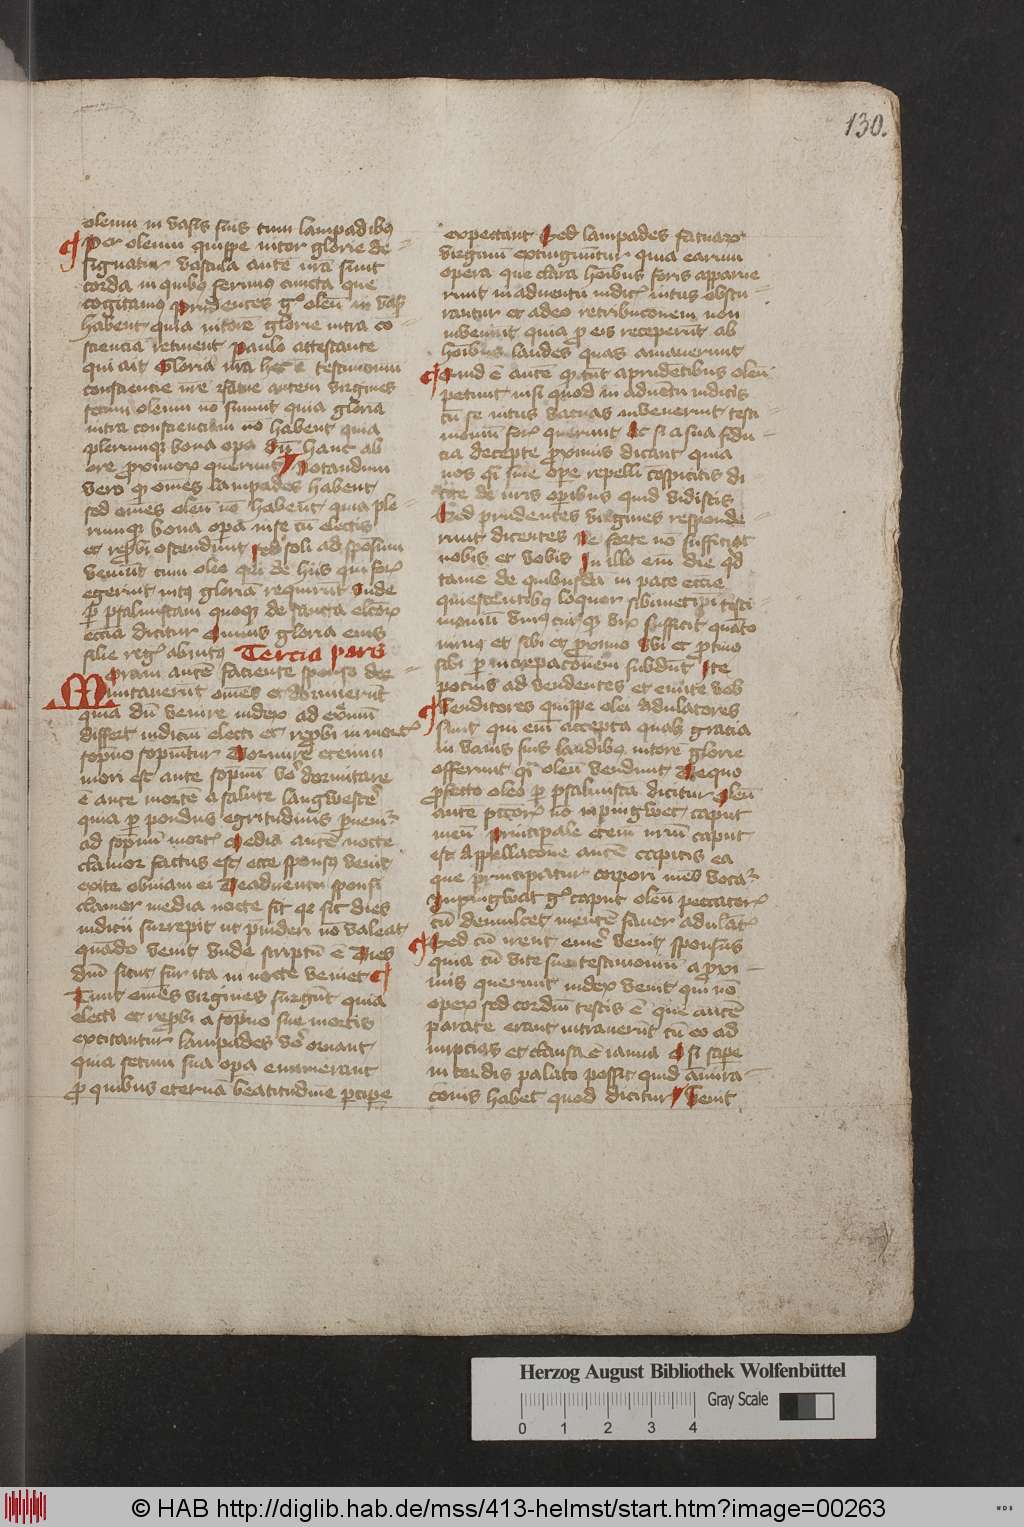 130.
oleum in vasis suis cum lampadibꝫ
¶ Per oleum quippe nitor glorie de-
signatur vascula autē nr̄a sunt
corda in quibꝫ ferimꝰ cuncta que
cogitamꝰ Prudentes gͦ oleū in vasꝫ
habent quia nitorē glorie intra cō-
scienciā retinent Paulo attestante
qui ait Gloria nr̄a hec ē testimoniū
consciencie nr̄e fatue autem virgines
secum oleum nō sumunt quia gloriā
intra conscienciam nō habent quia
plerumqꝫ bona opa dū hanc ab
ore proximorꝫ querunt Notandum
vero qꝫ om̄es lampades habent
sed om̄es oleū nō habent quia ple-
rumqꝫ bona opa in se cū electis
et repbi ostendūnt sed soli ad sponsum
veniūt cum oleo qui de hiis qui forꝭ
egerint intꝰ gloriā requirūt Unde
p psalmistam quoqꝫ de sancta electorꝫ
eccia dicitur Omnis gloria eius
filie regꝭ ab intꝰ Tercia pars
Moram autē faciente sponso dor-
mitauerūt om̄es et dormierūt
quia dū venire iudex ad ext̄mū
differt iudiciū electi et repbi in mortꝭ
sopno sopiūtur Dormire etenim
mori est ante sopnū v̄o dormitare
ē ante mortē a salute langwescē
quia p pondus egritudinis puenitꝭ
ad sopnū mortꝭ Media autē nocte
clamor factus est ecce sponsꝰ venit
exite obuiam ei De aduentu sponsi
clamor media nocte fit qꝛ sic dies
iudicii surrepit ut puideri nō valeat
quando venit vnde scriptū ē Dies
dn̄i sicut fur ita in nocte veniet ¶
Tunc om̄es virgines surgūt quia
electi et repbi a sopno sue mortis
excitantur lampades v̄o ornant
quia secum sua opa enumerant
p quibus eternā beatitudine pcipe
expectant Sed lampades fatuarꝫ
virginū extinguntur quia earum
opera que clara hoībus foris apparue
runt in aduentū iudicꝭ intus obscu-
rantur et a deo retribucionem non
inueniūt quia p eis receperūt ab
hoībus laudes quas amauerunt
¶ Quid ē autē qꝫ tūc a prudētibus oleū
petunt nisi quod in aduētu iudicis
cū se intus vacuas inuenerint testi
moniū forꝭ querunt Ac si a sua fidu-
cia decepte proximis dicant quia
nos qͣi sine ope repelli cōspicitis di
cite de nr̄is opibus quid vidistis
Sed prudentes virgines responde-
runt dicentes Ne forte nō sufficiat
nobis et vobis In illo em̄ die qd
tamē de quibusdā in pace eccīe
quiescentibꝫ loquor sibimetipi testi-
moniū vniꝰcuiꝰqꝫ vix sufficit quāto
minꝰ et sibi et proximo Ubi et ptinꝰ
sibi p increpacōnem subdūt Ite
potius ad vendentes et emite vob
¶ Venditores quippe olei adulatores
sunt qui em̄ accepta qualꝫ gracia
in vanis suis laudibꝫ nitorē glorie
offerunt qͣi oleū vendunt De quo
pfecto oleo p psalmista dicitur Oleū
autē pctōrꝭ nō inpingwet caput
meū Principale etem nr̄m caput
est Appellacōne autē capitis ea
que principatur corpori mēs vocaꝭ
Inpingwat gͦ caput oleū peccatorꝭ
cū demulcet mentē fauor adulātꝭ
¶ Sed cū irent emē venit sponsus
quia cū vite sue testimoniū a proxi-
mis querunt iudex venit qui nō
operꝫ sed cordiū testis ē que autē
parate erant intrauerūt cū eo ad
nupcias et clausa ē ianua O si sape
in cordis palato possit quid āmira-
cōnis habet quod dicitur Venit
Herzog August Bibliothek Wolfenbüttel
Gray Scale
0 1 2 3 4
© HAB http://diglib.hab.de/mss/413-helmst/start.htm?image=00263